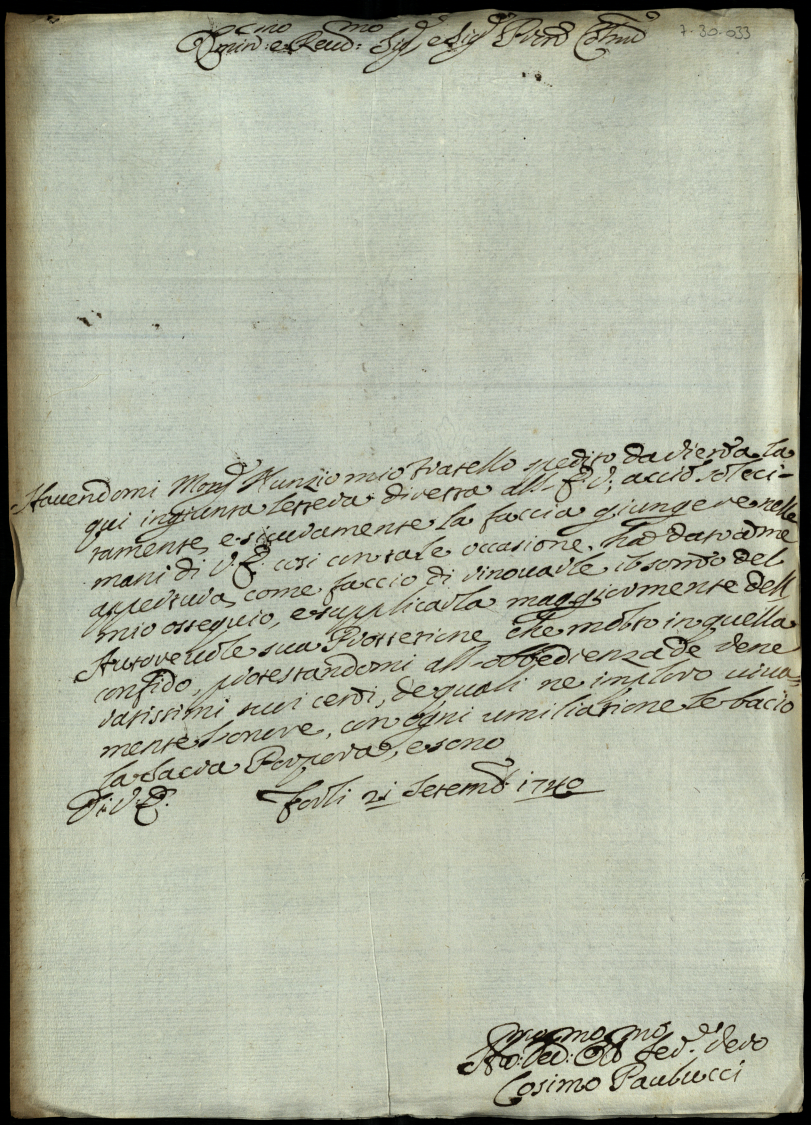 7-30-033
Emin:mo e Reud:mo Sig:r e Sig:r Pron Colmo
Hauendomi Mons:r Nunzio mio Fratello spedito da Vienna la
qui ingiunta lettera diretta all' E. V., acciò soleci-
tamente, e sicuramente la faccia giungere nelle
mani di V. E. così con tale occasione, ha dato à me
appertura, come faccio di rinouarle il sommo del
mio ossequio, e supplicarla maggiormente dell
Autoreuole sua Prottezione, che molto in quella
confido, protestandomi all obbedienza de Vene
ratissimi suoi cenni, de quali ne imploro viua=
mente l'onore, con ogni umiliazione le bacio
la Sacra Porpora, e sono
Di V. E. Forlì 21 Settemb: 1740
Vmo: Deu:mo Ob:mo Seru:r vero
Cosimo Paulucci